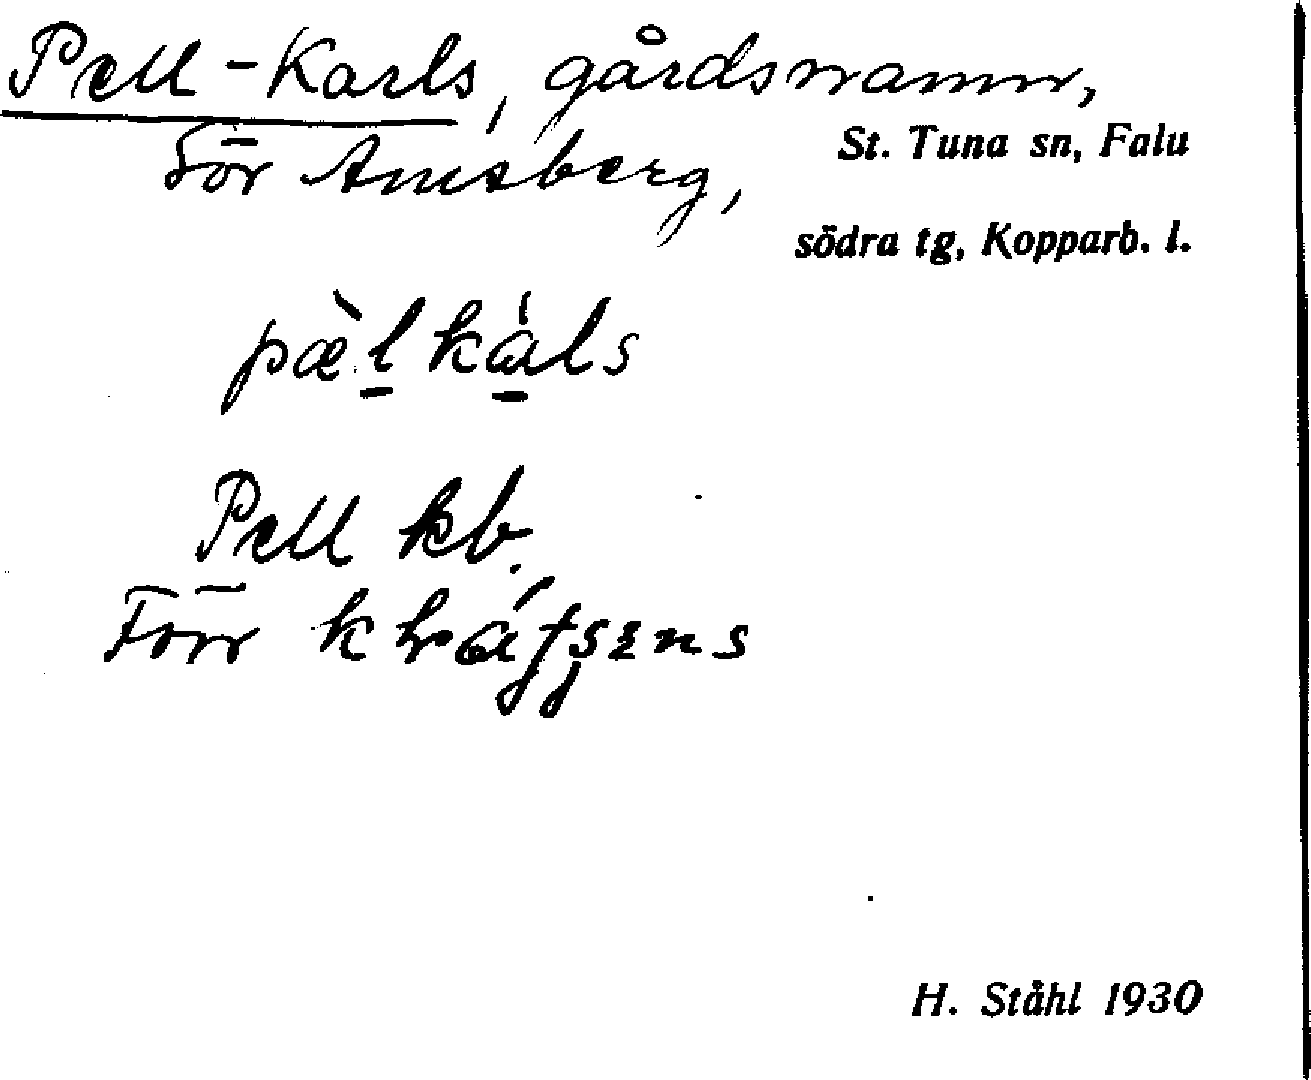 Pell-Karls, gårdsnamn,
Sör Amsberg,
St. Tuna sn, Falu
södra tg, Kopparb. l.
pæ̀l kàls
Pell kb.
Förr
H. Ståhl 1930